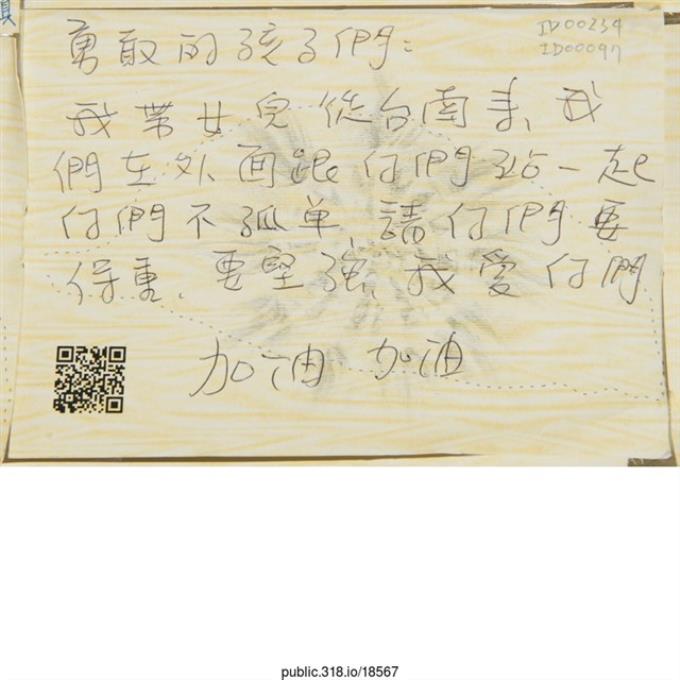 ID00234
ID00097
勇敢的孩子們：
我帶女兒從台南來，我
們在外面跟你們站一起
你們不孤单，請你們要
保重，要堅強，我愛你們
加油 加油
public.318.io/18567